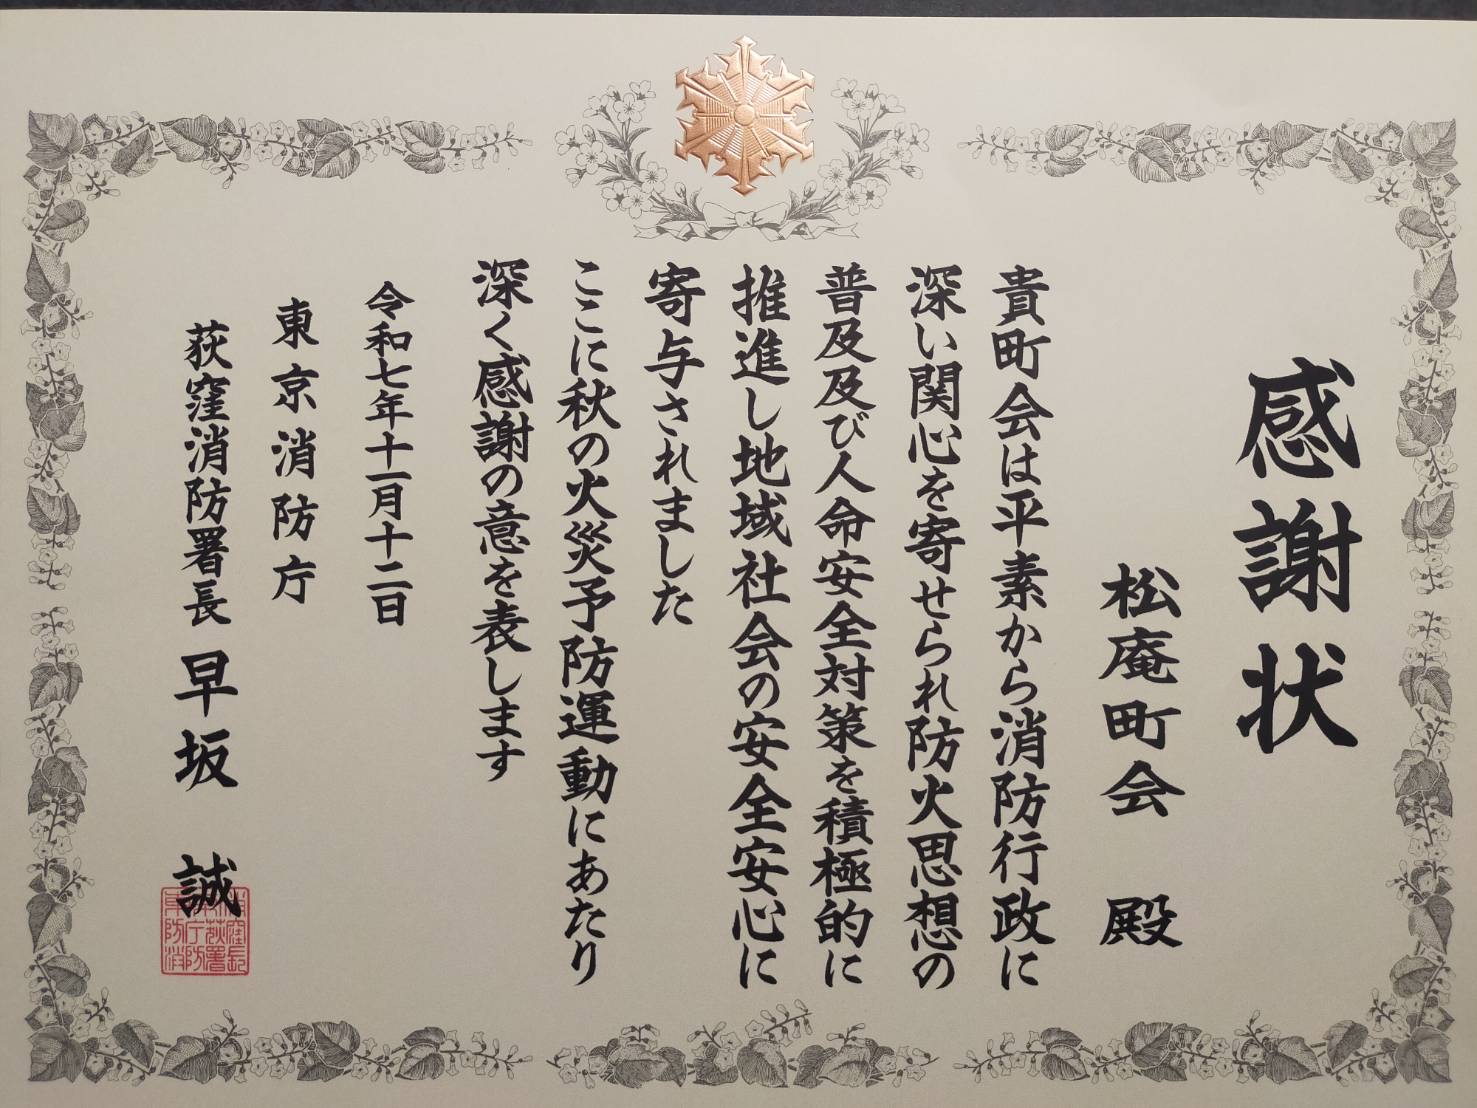 感謝状
松庵町会 殿
貴町会は平素から消防行政に
深い関心を寄せられ防火思想の
普及及び人命安全対策を積極的に
推進し地域社会の安全安心に
寄与されました
ここに秋の火災予防運動にあたり
深く感謝の意を表します
令和七年十一月十二日
東京消防庁
荻窪消防署長 早坂 誠